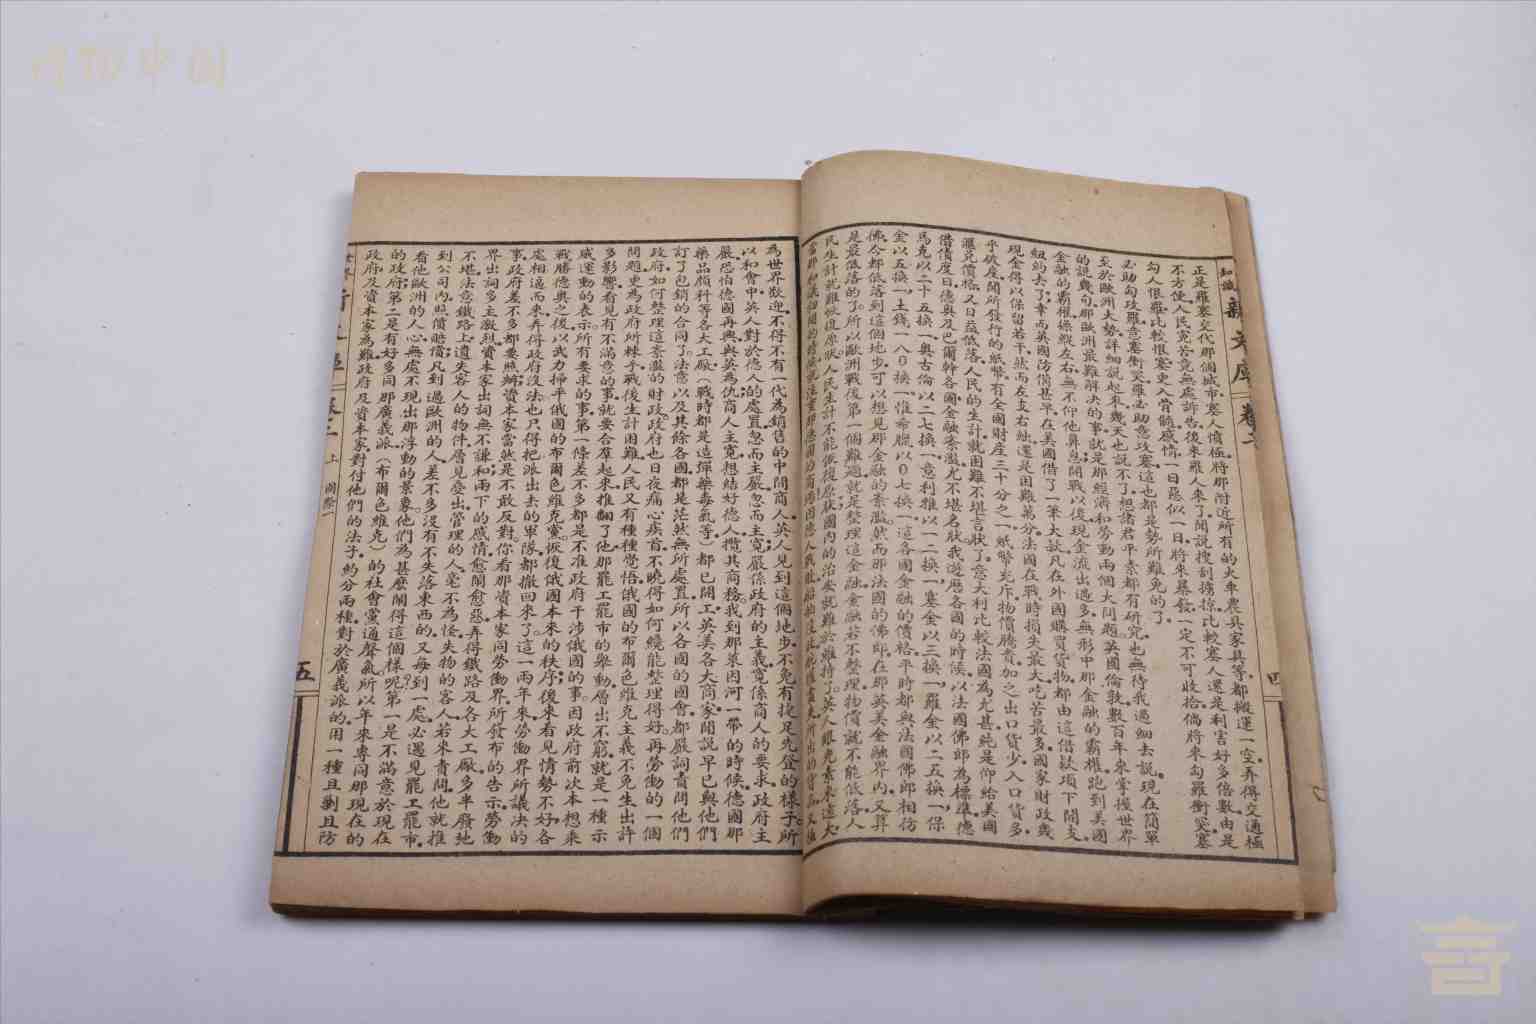 知識
新文庫
卷之
四
正是羅塞交代那個城市塞人憤極將那附近所有的火車農具家具等都搬運一空弄得交通極
不方便人民寃苦竟無處訴告後來羅人來了聞說搜刮擄掠比較塞人還是利害好多倍數由是
勾人恨羅比較恨塞更入骨髓感情一日惡似一日將來暴發一定不可收拾倘將來勾羅衝突塞
必助勾攻羅意塞衝突羅必助意攻塞這也都是勢所難免的了
至於歐洲大勢詳細說起來幾天也說不了想諸君平素都有研究也無待我過細去說現在簡單
的說幾句那歐洲最難解決的事就是那經濟和勞動兩個大問題英國倫敦數百年來掌握世界
金融的霸權操縱左右無不仰他鼻息開戰以後現金流出過多無形中那金融的霸權跑到美國
紐約去了幸而英國防備甚早在美國借了一筆大款凡在外國購買貨物都由這借款項下開支
現金得以保留若干然而左支右絀還是困難萬分法國在戰時損失最大吃苦最多國家財政幾
乎破産開所發行的紙幣有全國財産三十分之一紙幣充斥物價騰貴加之出口貨少入口貨多
滙兌價格又日益低落人民的生計就困難不堪言狀了意大利比較法國為尤甚純是仰給美國
借債度日德奧及巴爾幹各國金融紊濫尤不堪名狀我遊歷各國的時候以法國佛郎為標準德
馬克以二十五換一奧古倫以二七換一意利雅以一二換一塞金以三換一羅金以二五換一保
金以五換一土錢一八〇換一惟希臘以〇七換一這各國金融的價格平時都與法國佛郎相彷
佛今都低落到這個地步可以想見那金融的紊濫然而那法國的佛郎在那英美金融界內又算
是最低落的了所以歐洲戰後第一個難題就是整理這金融金融若不整理物價就不能低落人
民生計就難恢復原狀人民生計不能恢復原狀國內的治安就難於維持了英人眼光素來遠大
為世界歡迎不得不有一代為銷售的中間商人英人見到這個地步不免有捷足先登的樣子所
以和會中英人對於德人的處置忽而主嚴忽而主寬嚴係政府的主義寬係商人的要求政府主
嚴恐怕德國再興與英為仇商人主寬想結好德人攬其商務我到那萊因河一帶的時候德國那
藥品顏料等各大工廠(戰時都是造彈藥毒氣等)都已開工英美各大商家聞說早已與他們
訂了包銷的合同了法意以及其餘各國都是茫然無所處置所以各國的國會都嚴詞責問他們
政府如何整理這紊濫的財政政府也日夜痛心疾首不曉得如何繞能整理得好再勞働的一個
問題更為政府所棘手戰後生計困難人民又有種種覺悟俄國的布爾色維克主義不免生出許
多影響看見有不滿意的事就要合羣起來推翻了他那罷工罷市的舉動層出不窮就是一種示
威運動的表示所有要求的事第一條差不多都是不准政府干涉俄國的事因政府前次本想來
戰勝德奧之後以武力掃平俄國的布爾色維克黨恢復俄國本來的秩序後來看見情勢不好各
處相逼而來弄得政府沒法也只得把派出去的軍隊都撤回來了這一兩年來勞働界所議決的
事政府差不多都要照辦資本家當然是不敢反對你看那資本家同勞働界所發布的告示勞働
界出詞多主激烈資本家出詞無不謙和兩下的感情愈鬧愈惡弄得鐵路及各大工廠多半廢地
不堪法意鐵路上遺失客人的物件層見叠出管理的人毫不為怪失物的客人若來責問他就推
到公司內照價賠償凡到過歐洲的人差不多沒有不失落東西的又每到一處必遇見罷工罷市
看他歐洲的人心無處不現出那浮動的景象他們為甚麽鬧得這個樣呢第一是不滿意於現在
的政府第二是有好多同那廣義派(布爾色維克)的社會黨通聲氣所以年來專同那現在的
政府及資本家為難政府及資本家對付他們的法子約分兩種對於廣義派的用一種且剿且防
國際一
五